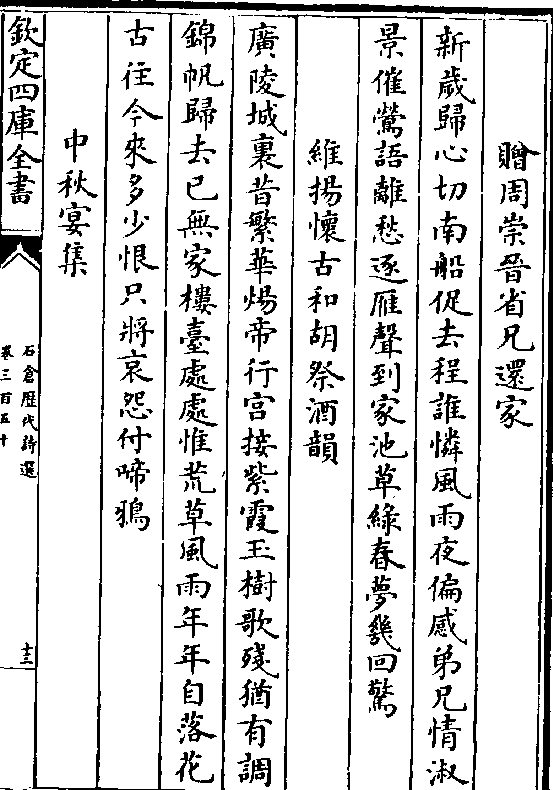 贈周崇晉省兄還家
新歲歸心切南船促去程誰憐風雨夜偏感弟兄情淑
景催鶯語離愁逐雁聲到家池草綠春夢幾回驚
維揚懷古和胡祭酒韻
廣陵城裏昔繁華煬帝行宫接紫霞玉樹歌殘猶有調
錦帆歸去已無家樓臺處處惟荒草風雨年年自落花
古往今來多少恨只將哀怨付啼鴉
中秋宴集
欽定四庫全書
石倉歷代詩選
卷三百五十
十三